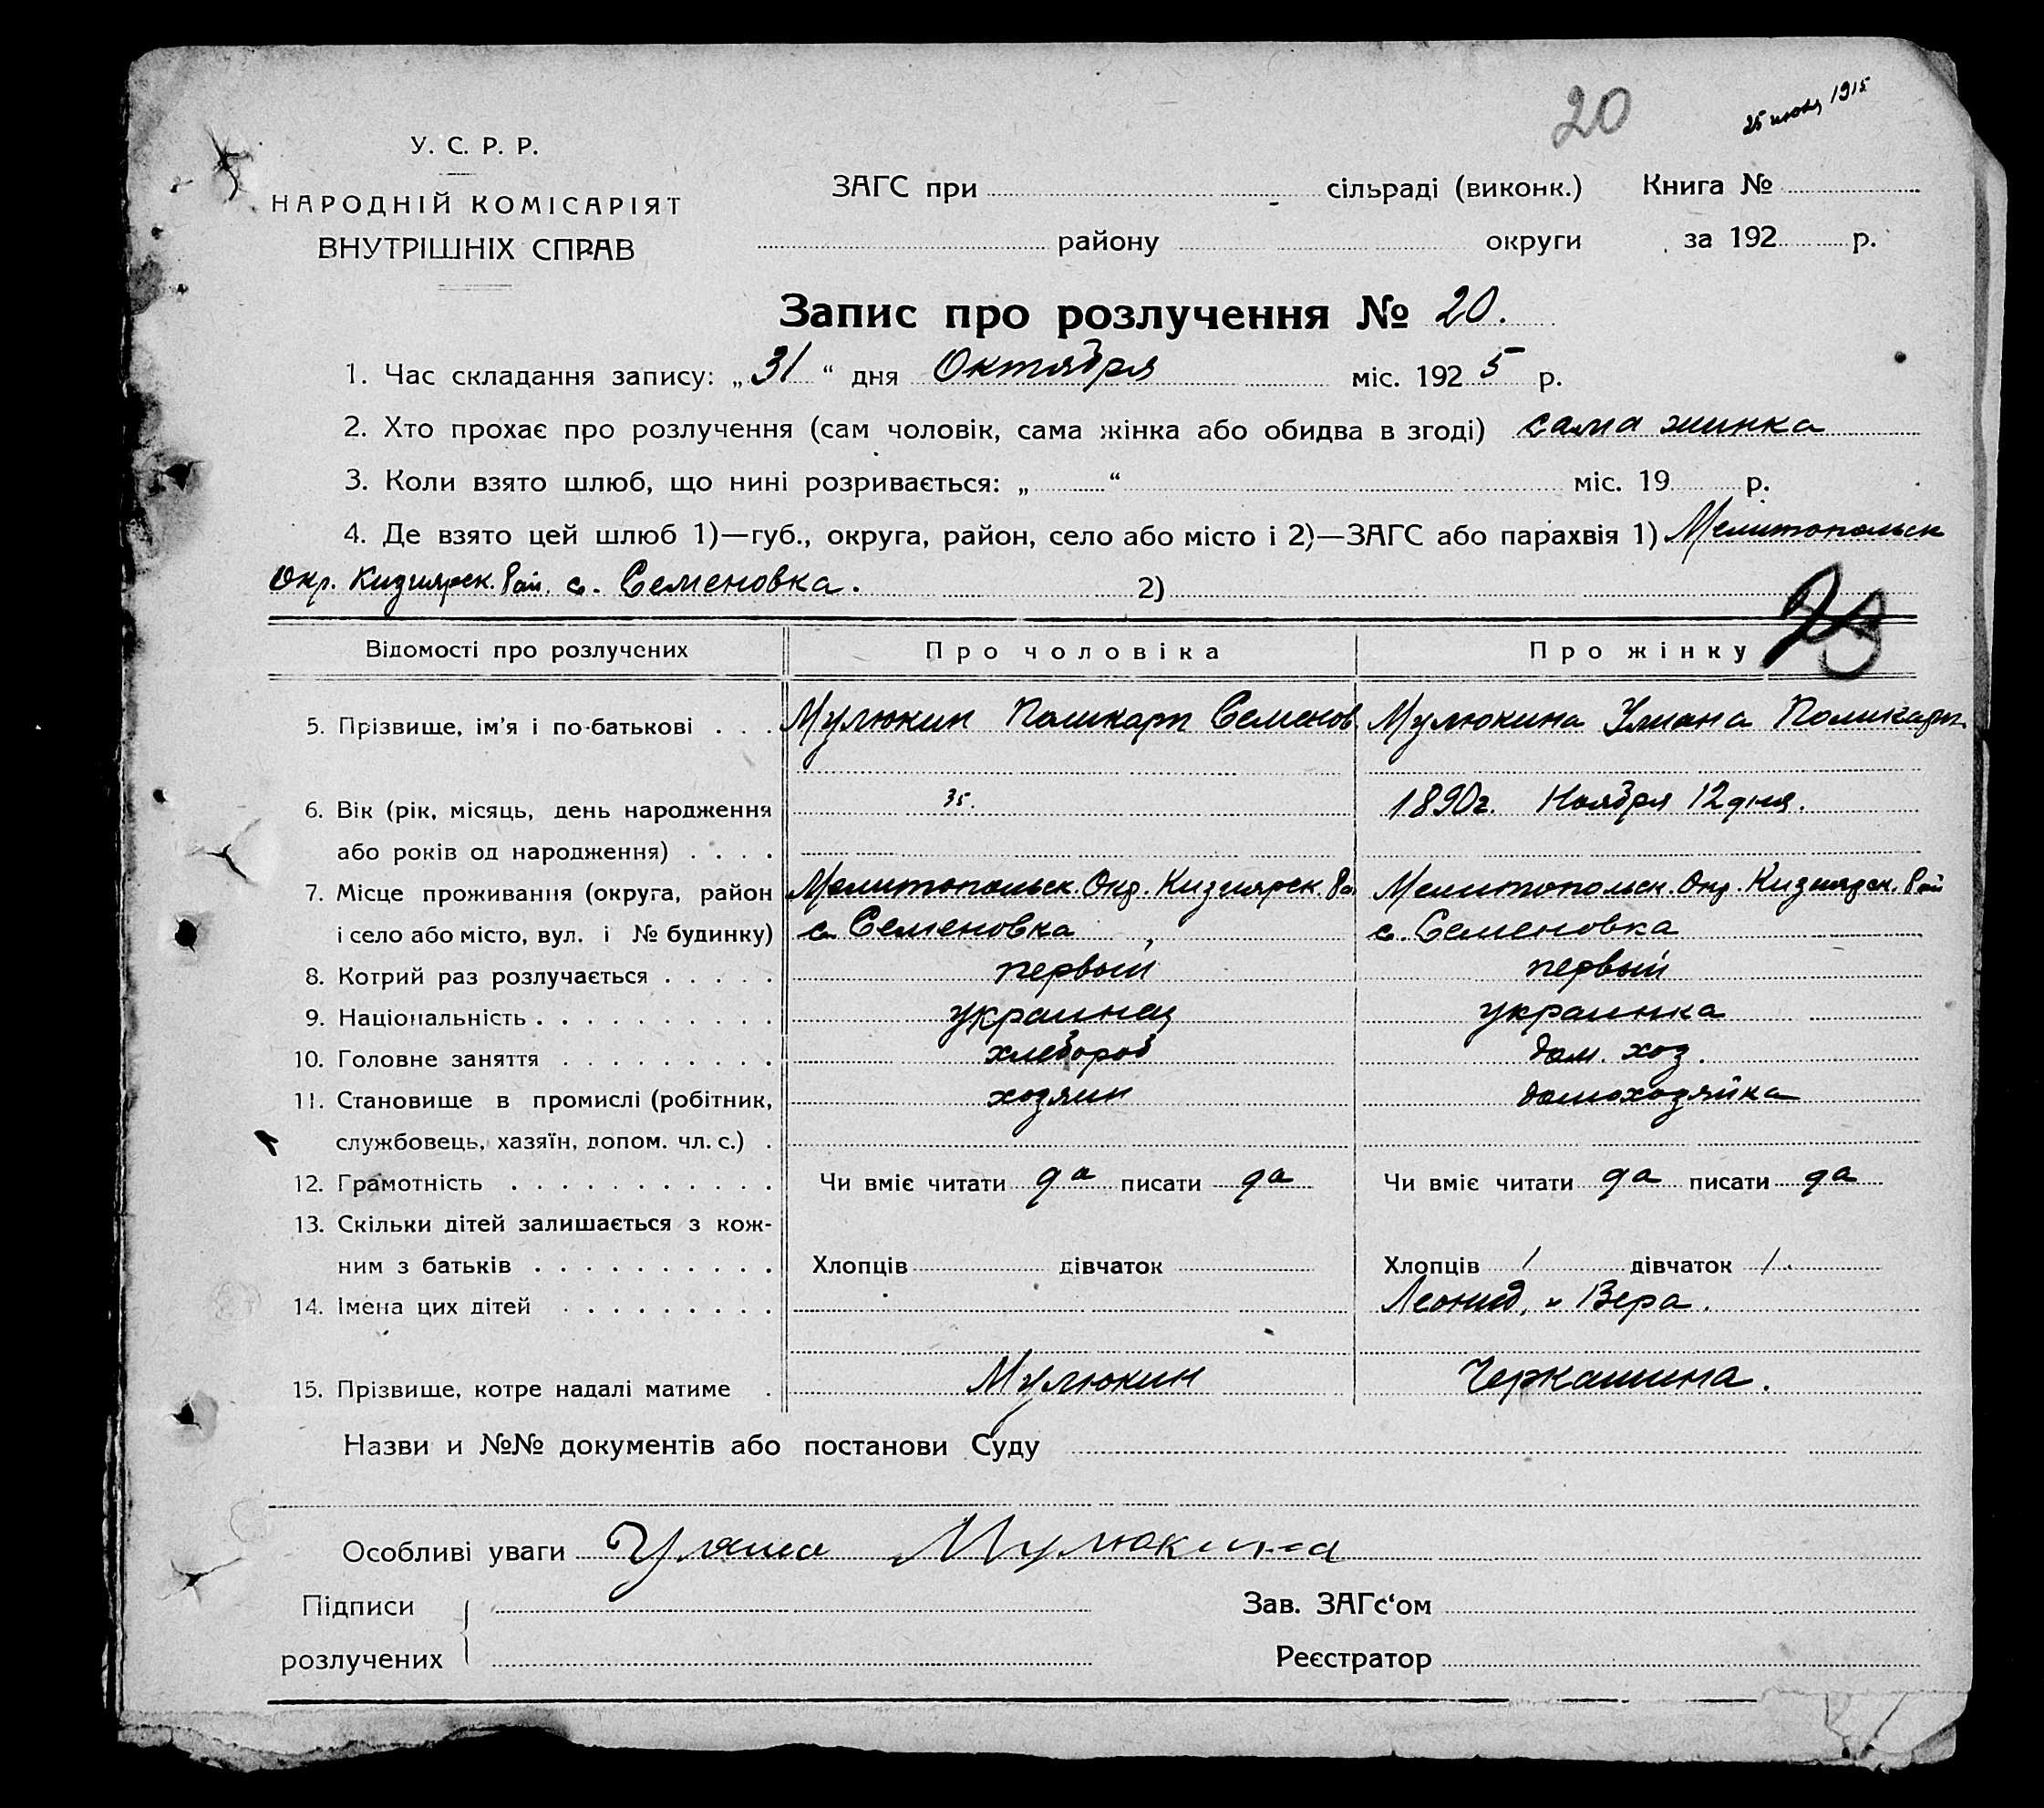 20
25 июня 1915
У. С. Р. Р.
НАРОДНІЙ КОМІСАРІЯТ
ВНУТРІШНІХ СПРАВ
ЗАГС при сільраді (виконк.) Книга №
району округи за 192 р.
Запис про розлучення № 20.
1. Час складання запису: „ 31 “ дня Октября міс. 192 5 р.
2. Хто прохає про розлучення (сам чоловік, сама жінка або обидва в згоді) сама жинка
3. Коли взято шлюб, що нині розривається: „ “ міс. 19 р.
4. Де взято цей шлюб 1)—губ., округа, район, село або місто і 2)—ЗАГС або парахвія 1) Мелитопольск
Окр. Кизиярск. Рай. с. Семеновка. 2)
Відомості про розлучених Про чоловіка Про жінку
5. Прізвище, ім'я і по-батькові . . . Мулюкин Поликарп Семенов Мулюкина Улиана Поликарп.
6. Вік (рік, місяць, день народження 35. 1890г. Ноября 12 дня.
або років од народження) . . . .
7. Місце проживання (округа, район Мелитопольск. Окр. Кизиярск. Ра Мелитопольск. Окр. Кизиярск. Рай
і село або місто, вул. і № будинку) с. Семеновка с. Семеновка
8. Котрий раз розлучається . . . . . первый первый
9. Національність . . . . . . . . . . украинец украинка
10. Головне заняття . . . . . . . . . хлебороб дом. хоз.
11. Становище в промислі (робітник, хозяин домохозяйка
службовець, хазяїн, допом. чл. с.) .
12. Грамотність . . . . . . . . . . . Чи вміє читати да писати да Чи вміє читати да писати да
13. Скільки дітей залишається з кож-
ним з батьків . . . . . . . . . . Хлопців дівчаток Хлопців 1 дівчаток 1.
14. Імена цих дітей . . . . . . . . . Леонид, и Вера.
15. Прізвище, котре надалі матиме . Мулюкин Черкашина.
Назви и №№ документів або постанови Суду
Особливі уваги Уляна Мулюкина
Підписи Зав. ЗАГс‘ом
розлучених Реєстратор